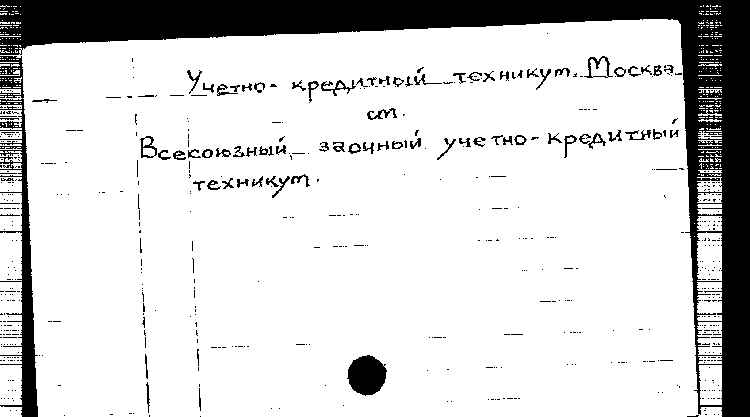 Учетно-кредитный техникум. Москва
см.
Всесоюзный заочный учетно-кредитный
техникум.